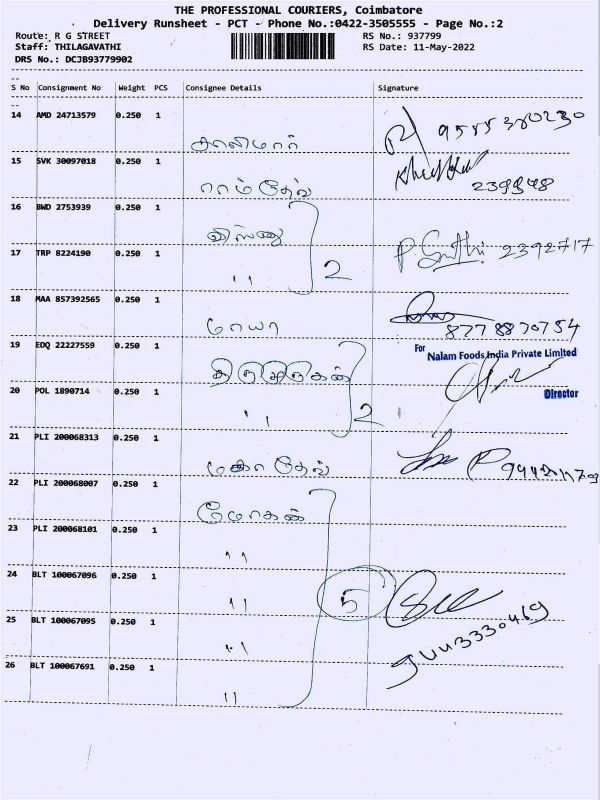 THE PROFESSIONAL COURIERS, Coimbatore
Delivery Runsheet - PCT - Phone No.:0422-3505555 - Page No.:2
Route: R G STREET RS No.: 937799
Staff: THILAGAVATHI RS Date: 11-May-2022
DRS No.: DCJB93779902
S No Consignment No Weight PCS Consignee Details Signature
14 AMD 24713579 0.250 1
15 SVK 30097018 0.250 1
ராம்தேவ் 239948
16 BWD 2753939 0.250 1
விஷ்ணு
17 TRP 8224190 0.250 1 2392717
" 2
18 MAA 857392565 0.250 1
மாயா 8778870754
19 EDQ 22227559 0.250 1
For Nalam Foods India Private Limited
திருமுருகன்
20 POL 1890714 0.250 1 Director
" 2
21 PLI 200068313 0.250 1
மகாதேவ்
22 PLI 200068007 0.250 1
மோகன்
23 PLI 200068101 0.250 1
"
24 BLT 100067096 0.250 1
" 5
25 BLT 100067095 0.250 1
"
26 BLT 100067691 0.250 1
"